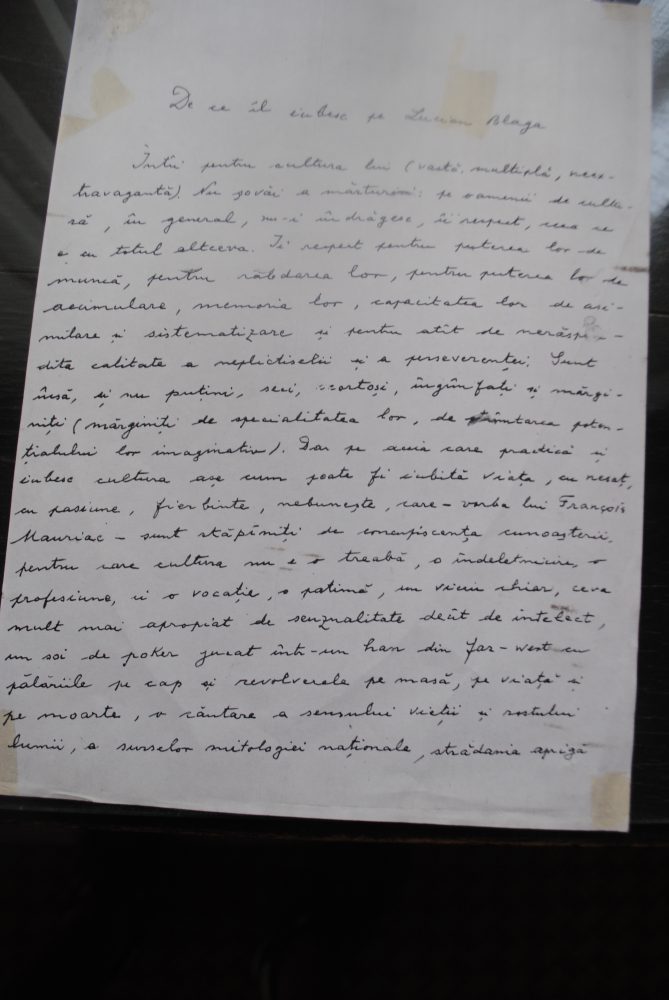 De ce îl iubesc pe Lucian Blaga
Întîi pentru cultura lui (vastă, multiplă, neex-
travagantă). Nu șovăi a mărturisi: pe oamenii de cultu-
ră, în general, nu-i îndrăgesc, îi respect, ceea ce
e cu totul altceva. Îi respect pentru puterea lor de
muncă, pentru răbdarea lor, pentru puterea lor de
acumulare, memoria lor, capacitatea lor de asi-
milare și sistematizare și pentru atît de nerăspîn-
dita calitate a neplictiselii și a perseverenței. Sunt
însă, și nu puțini, seci, scorțoși, îngînfați și mărgi-
niți (mărginiți de specialitatea lor, de poten-
țialului lor imaginativ). Dar pe aceia care practică și
iubesc cultura așa cum poate fi iubită viața, cu nesaț,
cu pasiune, fierbinte, nebunește, care - vorba lui François
Mauriac - sunt stăpîniți de concupiscența cunoașterii,
pentru care cultura nu e o treabă, o îndeletnicire, o
profesiune, ci o vocație, o patimă, un viciu chiar, ceva
mult mai apropiat de senzualitate decît de intelect,
un soi de poker jucat într-un han din far-west cu
pălăriile pe cap și revolverele pe masă, pe viață și
pe moarte, o căutare a sensului vieții și rostului
lumii, a surselor mitologiei naționale, strădania aprigă